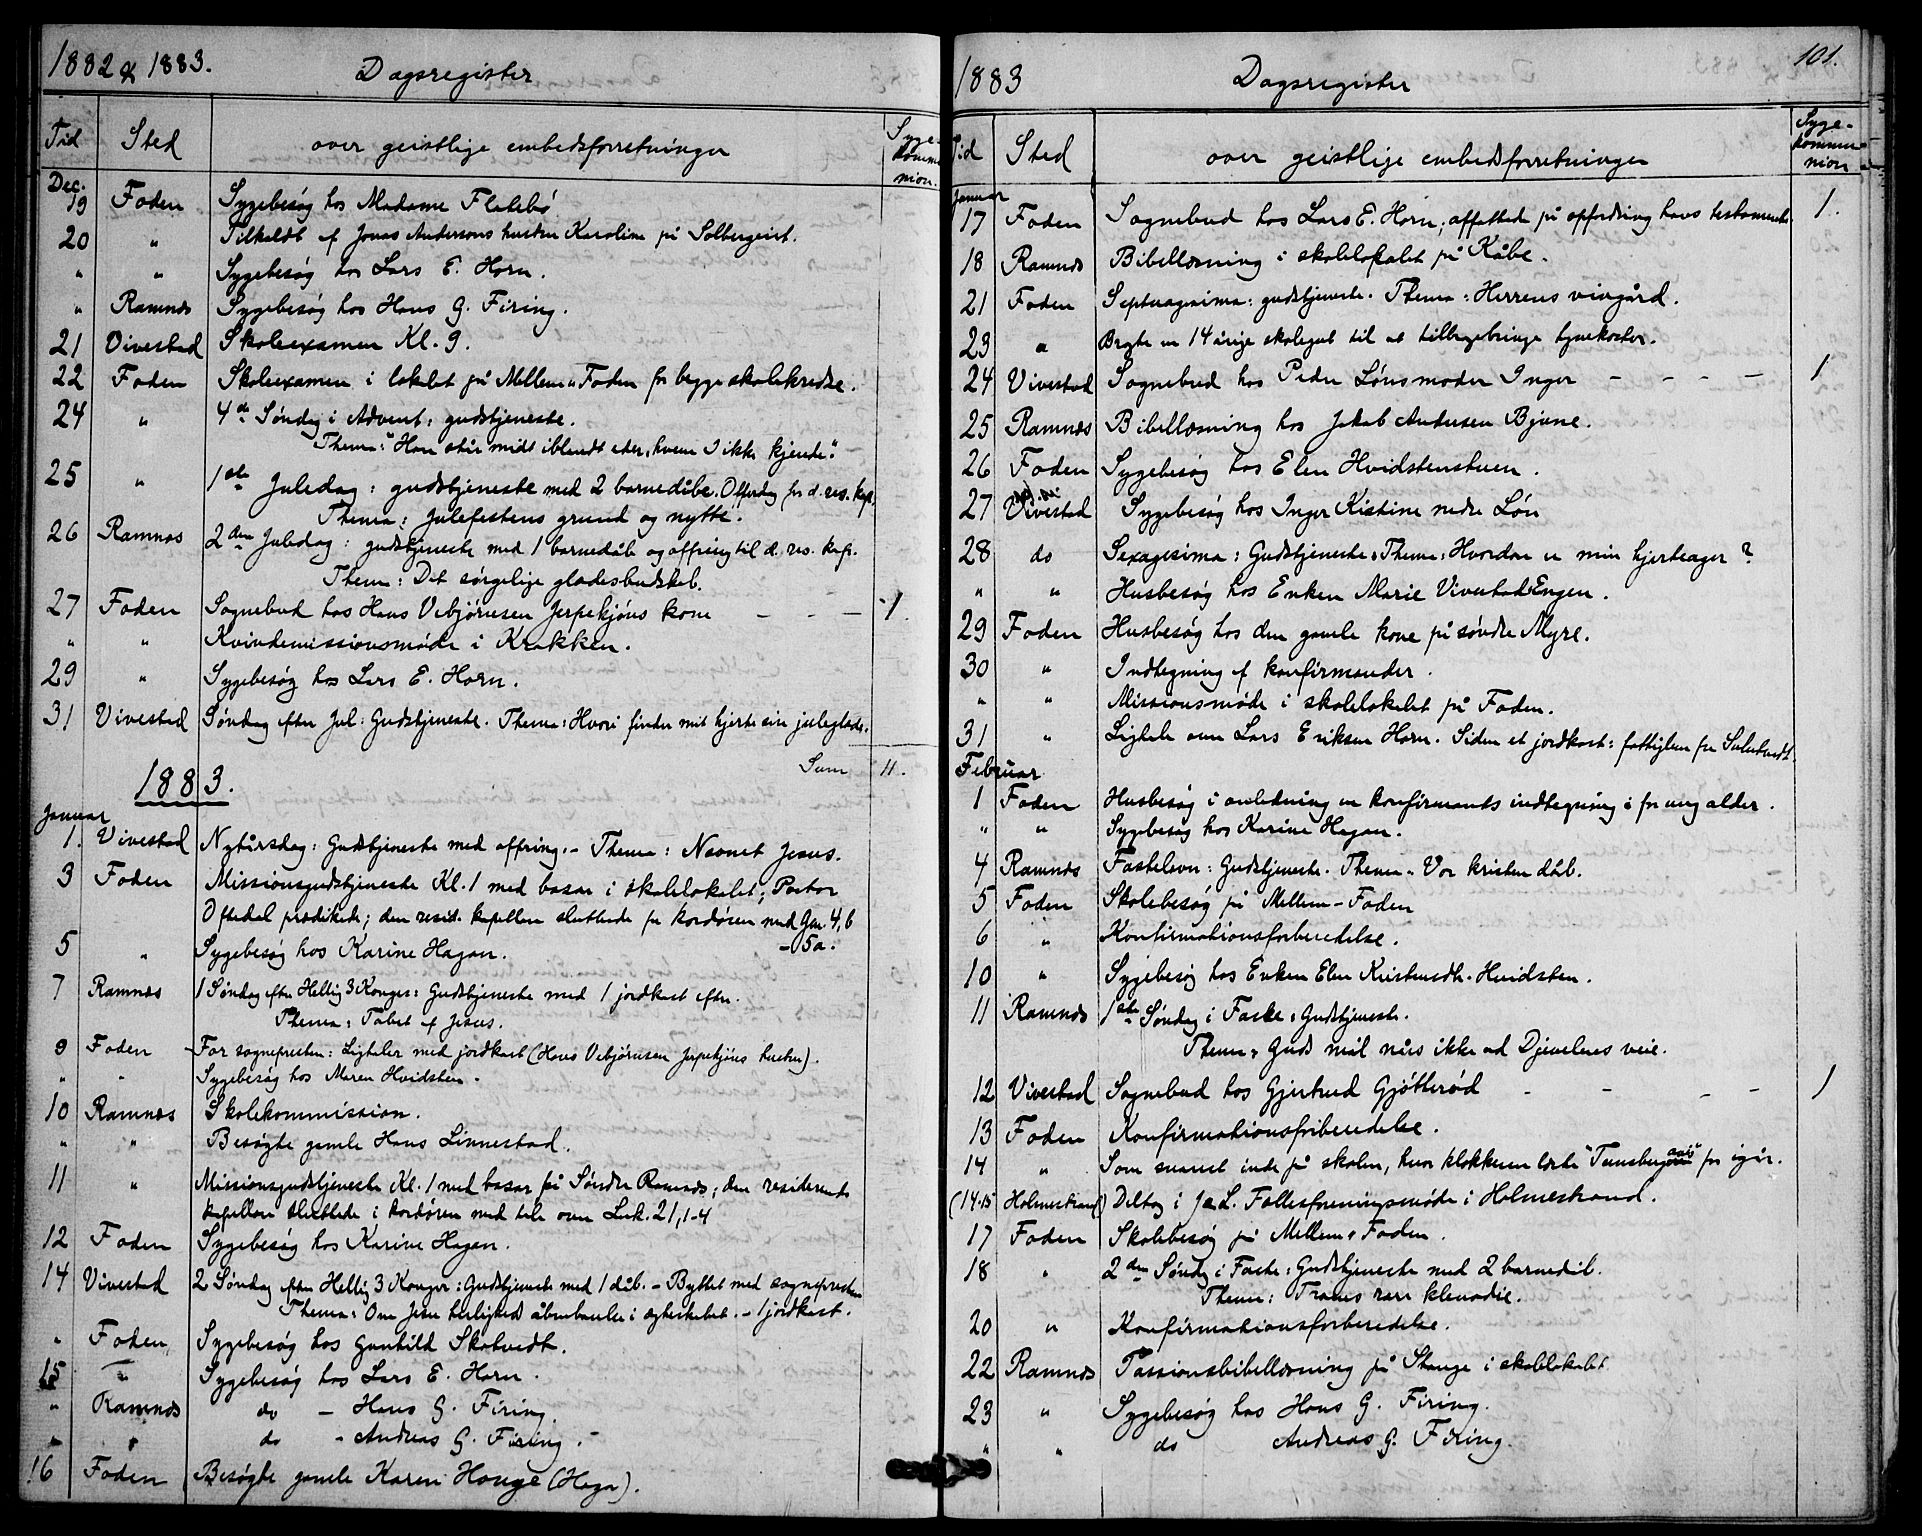 1882 & 1883.
Dagsregister
Tid Sted over geistlige embedsforretninger Sygekommunion.
Dec.
19 Foden Sygebesøg hos Madame Flatebø
20 " Tilkaldt af Jonas Andersens hustru Karoline på Solbergeiet.
" " Sygebesøg hos Lars E. Horn.
" Ramnæs Sygebesøg hos Hans G. Firing.
21 Vivestad Skoleexamen Kl. 9.
22 Foden Skoleexamen i lokalet på Mellem-Foden for begge skolekredse.
24 " 4de Søndag i Advent: gudstjeneste.
Thema: "Han står midt iblandt eder, hvem I ikke kjende."
25 " 1ste Juledag: gudstjeneste med 2 barnedåbe. Offerdag for d. res. kap.
Thema: Julefestens grund og nytte.
26 Ramnæs 2den Juledag: gudstjeneste med 1 barnedåb og offring til d. res. kap.
Thema: Det sørgelige glædesbudskab.
27 Foden Sognebud hos Hans Vebjørnsen Jerpekjøns kone — — — 1.
" " Kvindemissionsmøde i Krakken.
29 " Sygebesøg hos Lars E. Horn.
31 Vivestad Søndag efter Jul: Gudstjeneste. Thema: Hvori finder mit hjerte sin juleglæde.
Sum 11.
1883.
Januar
1. Vivestad Nytårsdag: Gudstjeneste med offring. - Thema: Navnet Jesus.
3 Foden Missionsgudstjeneste Kl. 1 med basar i skolelokalet; Pastor
Oftedal prædikede; den resid. kapellan sluttede fra kordøren med Gen. 4, 6
5 " Sygebesøg hos Karine Hagan. - 5a.
7 Ramnæs 1 Søndag efter Hellig 3 Konger: Gudstjeneste med 1 jordkast efter.
Thema: Tabet af Jesus.
9 Foden For sognepresten: Ligtaler med jordkast (Hans Vebjørnsen Jerpekjøns hustru).
" " Sygebesøg hos Maren Hvidsten.
10 Ramnæs Skolekommission.
" " Besøgte gamle Hans Linnestad.
11 " Missionsgudstjeneste Kl. 1 med basar på Søndre Ramnæs; den residerende
kapellan sluttede i kordøren med tale over Luk. 21, 1-4
12 Foden Sygebesøg hos Karine Hagan.
14 Vivestad 2 Søndag efter Hellig 3 Konger: Gudstjeneste med 1 dåb. - Byttet med sognepresten
Thema: Om Jesu herligheds åbenbarelse i ægteskabet. - 1 jordkast.
" Foden Sygebesøg hos Gunhild Skotvedt.
15 — Sygebesøg hos Lars E. Horn.
" Ramnæs do — Hans G. Firing.
" " do - Andreas G. Firing.
16 Foden Besøgte gamle Karen Hauge (Haga).
1883 Dagsregister 101.
Tid Sted over geistlige embedsforretninger Sygekommunion
Januar
17 Foden Sognebud hos Lars E. Horn; affattede på opfordring hans testamente. 1.
18 Ramnæs Bibellæsning i skolelokalet på Kåbe.
21 Foden Septuagesima: gudstjeneste. Thema: Herrens vingård.
23 " Bragte en 14 årige skolegut til at tilbagebringe tyvekoster.
24 Vivestad Sognebud hos Peder Lønsmoder Inger — — — — 1
25 Ramnæs Bibellæsning hos Jakob Andersen Bjune.
26 Foden Sygebesøg hos Elen Hvidstenstuen.
27 Vivestad Sygebesøg hos Inger Kistine nedre Løn
28 do Sexagesima: Gudstjeneste. Thema: Hvordan er min hjerteager?
" " Husbesøg hos Enken Marie Vivestad Engen.
29 Foden Husbesøg hos den gamle kone på søndre Myre.
30 " Indtegning af konfirmander.
" " Missionsmøde i skolelokalet på Foden.
31 " Ligtale over Lars Eriksen Horn. Siden et jordkast: fattiglem fra Sulutvedt.
Februar
1 Foden Husbesøg i anledning en konfirmants indtegning i for ung alder.
" " Sygebesøg hos Karine Hagan.
4 Ramnæs Fastelavn: Gudstjeneste. Thema: Vor kristen dåb.
5 Foden Skolebesøg på Mellem-Foden
6 " Konfirmationsforberedelse.
10 " Sygebesøg hos Enken Elen Kristensdtr. Hvidsten.
11 Ramnæs 1ste Søndag i Faste: Gudstjeneste.
Thema: Guds mål nås ikke ad Djævelens veie.
12 Vivestad Sognebud hos Gjertrud Gjøtterød - - - - 1
13 Foden Konfirmationsforberedelse.
14 " Som suarnet inde på skolen, hvor klokkeren læste "Tunsbergeren" for igår.
(14-15 Holmestrand) Deltog i J&L. Fællesforeningsmøde i Holmestrand.
17 Foden Skolebesøg på Mellem-Foden.
18 " 2den Søndag i Faste: Gudstjeneste med 2 barnedåb.
Thema: Troens rare klenodie.
20 " Konfirmationsforberedelse.
22 Ramnæs Passionsbibellæsning på Stange i skolelokalet
23 " Sygebesøg hos Hans G. Firing.
" " do Andreas G. Firing.